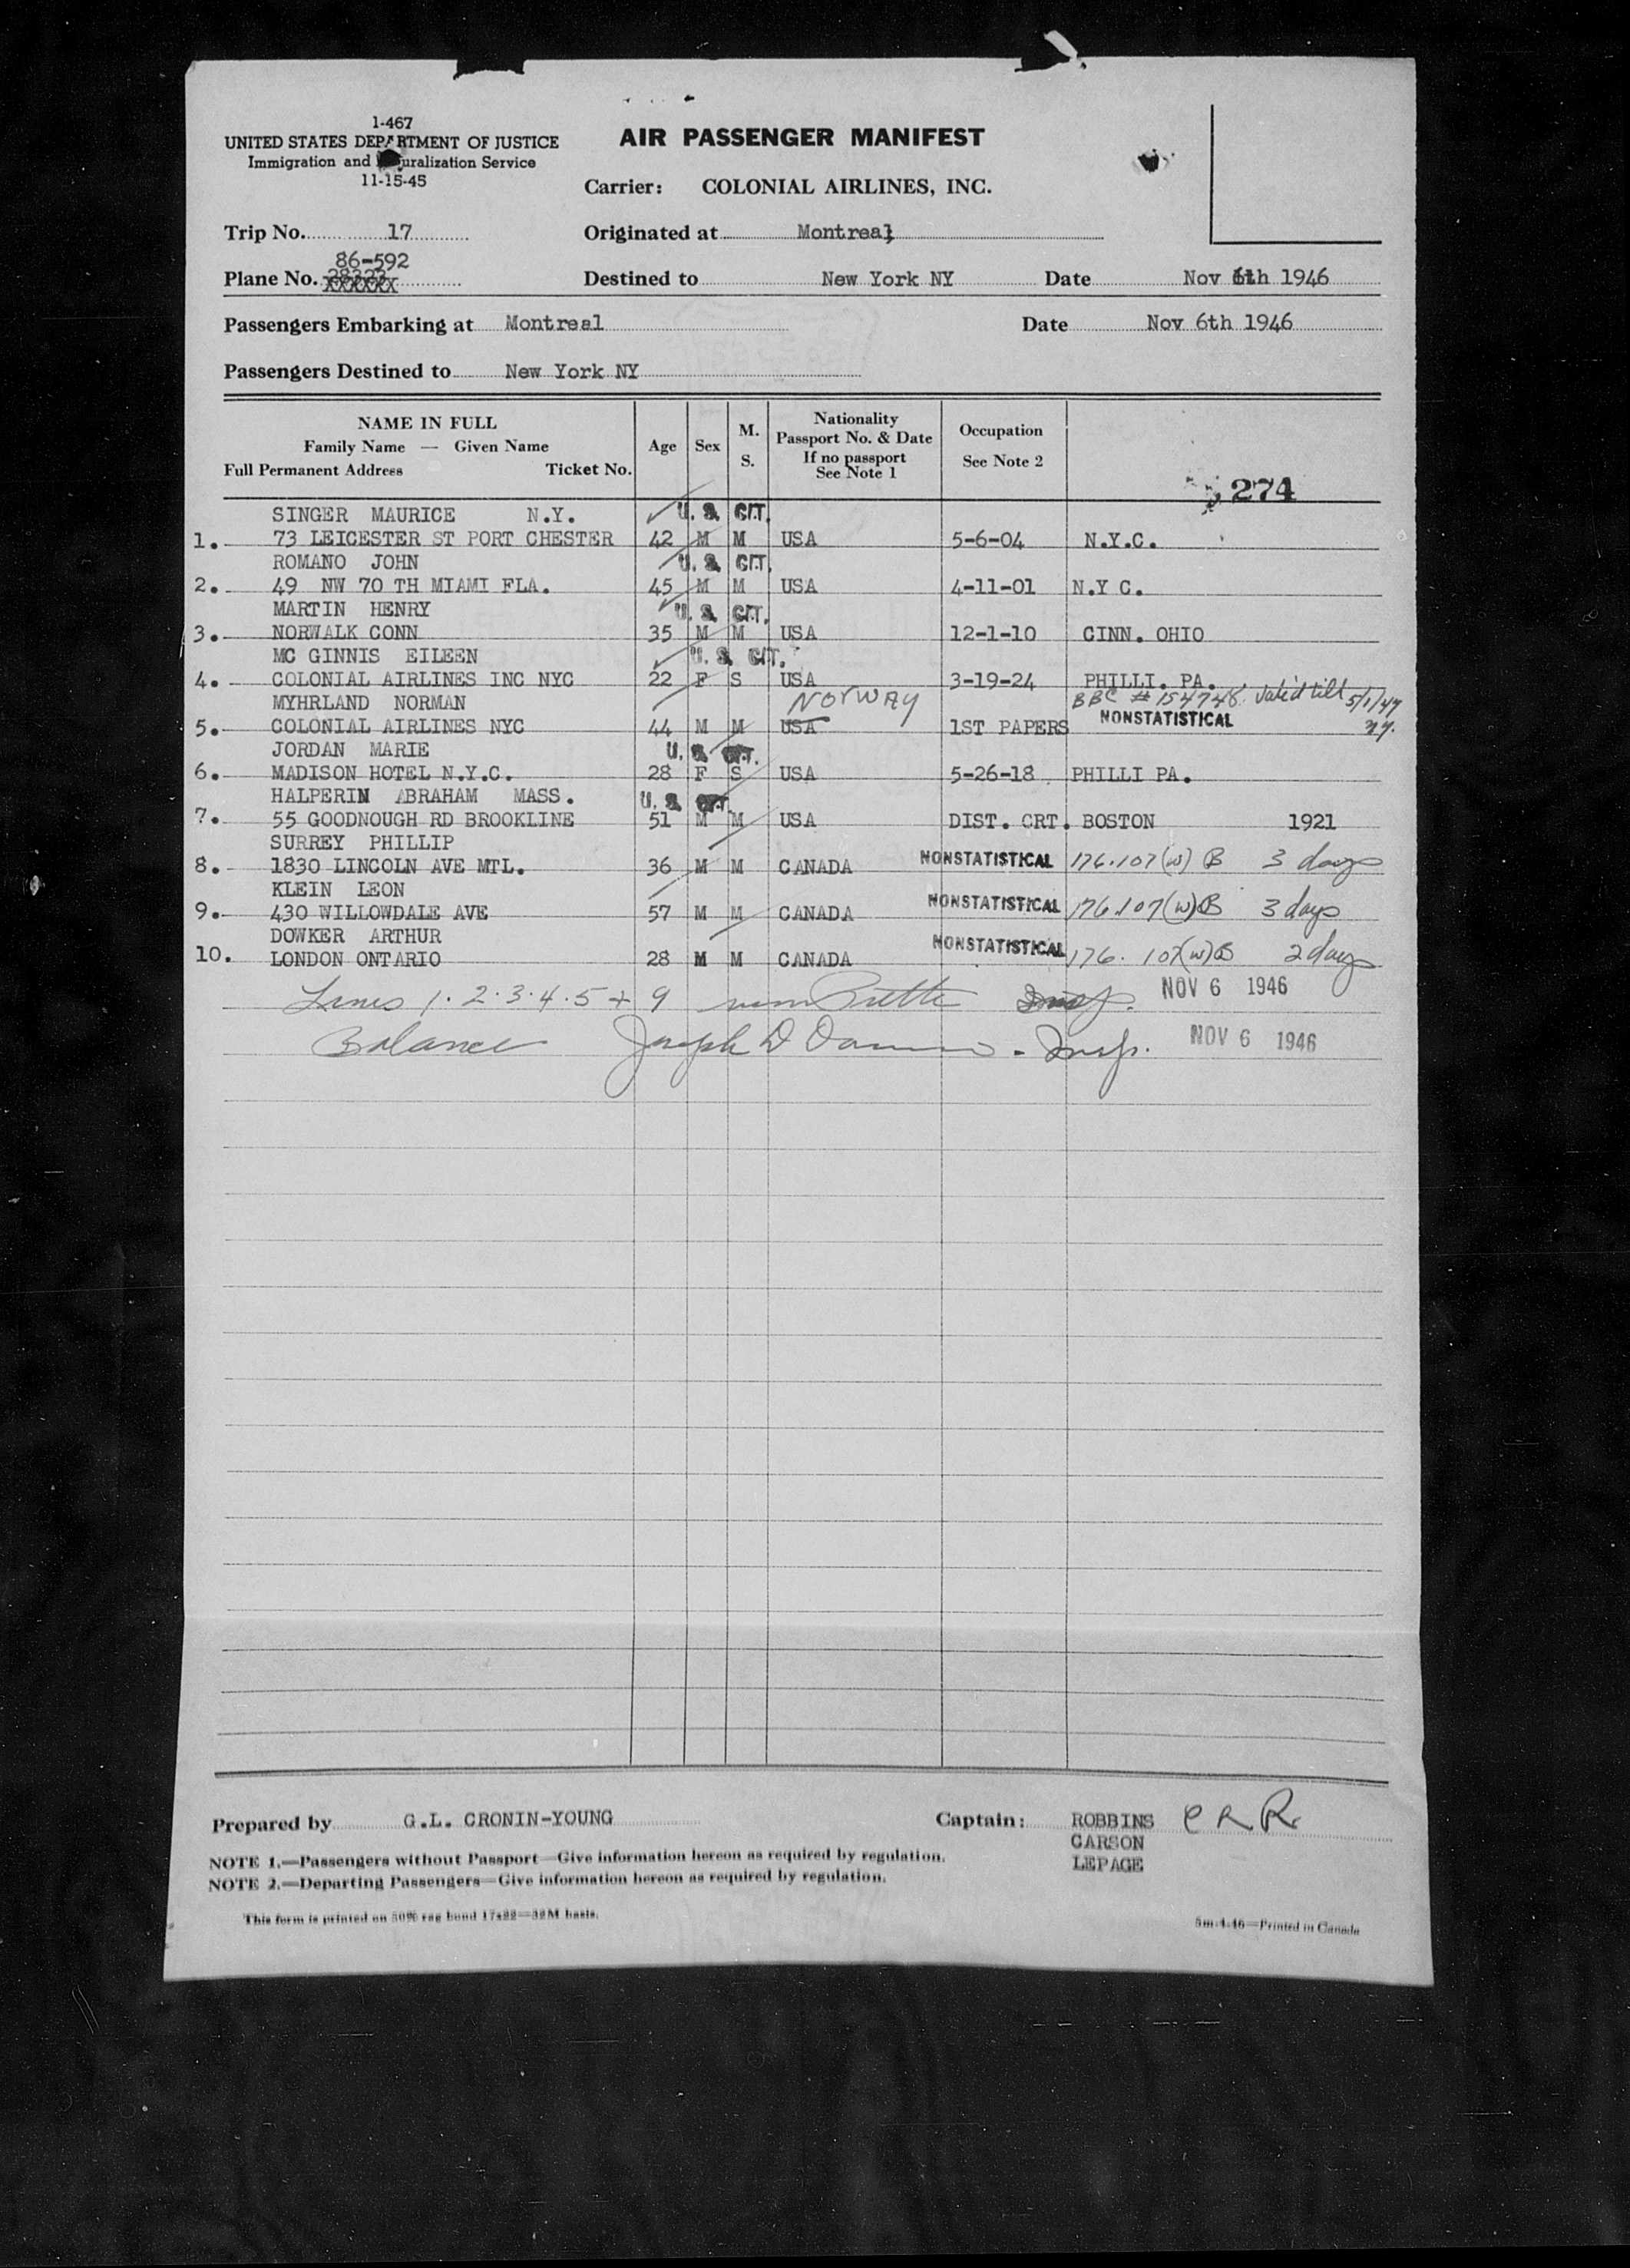 1-467
UNITED STATES DEPARTMENT OF JUSTICE
Immigration and Naturalization Service
11-15-45
AIR PASSENGER MANIFEST
Carrier: COLONIAL AIRLINES, INC.
Trip No. 17 Originated at Montreal
86-592
Plane No. Destined to New York NY Date Nov 6th 1946
Passengers Embarking at Montreal Date Nov 6th 1946
Passengers Destined to New York NY
NAME IN FULL
Family Name — Given Name
Full Permanent Address Ticket No.
Age
Sex
M.
S.
Nationality
Passport No. & Date
If no passport
See Note 1
Occupation
See Note 2
274
SINGER MAURICE N.Y. U. S. CIT.
1. 73 LEICESTER ST PORT CHESTER 42 M M USA 5-6-04 N.Y.C.
ROMANO JOHN U. S. CIT.
2. 49 NW 70 TH MIAMI FLA. 45 M M USA 4-11-01 N.Y C.
MARTIN HENRY U. S. CIT.
3. NORWALK CONN 35 M M USA 12-1-10 CINN. OHIO
MC GINNIS EILEEN U. S. CIT.
4. COLONIAL AIRLINES INC NYC 22 F S USA 3-19-24 PHILLI. PA.
MYHRLAND NORMAN NORWAY BBC # 154748 Valid till 5/1/47
5. COLONIAL AIRLINES NYC 44 M M USA 1ST PAPERS NONSTATISTICAL ny.
JORDAN MARIE U. S. CIT.
6. MADISON HOTEL N.Y.C. 28 F S USA 5-26-18 PHILLI PA.
HALPERIN ABRAHAM MASS. U. S. CIT.
7. 55 GOODNOUGH RD BROOKLINE 51 M M USA DIST. CRT. BOSTON 1921
SURREY PHILLIP
8. 1830 LINCOLN AVE MTL. 36 M M CANADA NONSTATISTICAL 176.107(w) B 3 days
KLEIN LEON
9. 430 WILLOWDALE AVE 57 M M CANADA NONSTATISTICAL 176.107(w)B 3 days
DOWKER ARTHUR
10. LONDON ONTARIO 28 M M CANADA NONSTATISTICAL 176.107(w)B 2 days
Lines 1.2.3.4.5 + 9 Insp. NOV 6 1946
Balance Joseph D Insp. NOV 6 1946
Prepared by G.L. CRONIN-YOUNG Captain: ROBBINS CRR
CARSON
LEPAGE
NOTE 1.—Passengers without Passport—Give information hereon as required by regulation.
NOTE 2.—Departing Passengers—Give information hereon as required by regulation.
This form is printed on 50% rag bond 17x22—32M basis.
5m-4-46—Printed in Canada